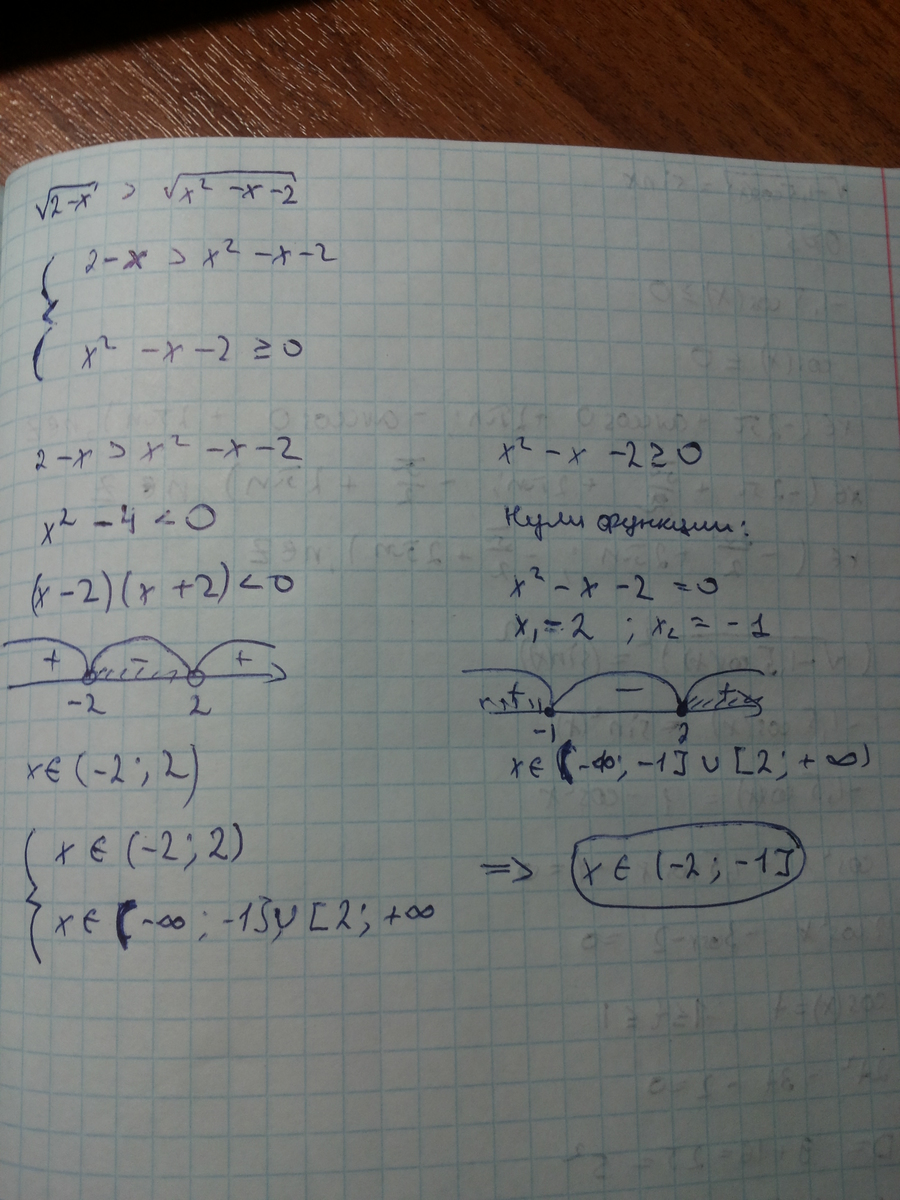 √2-x > √x² -x-2
2-x > x² -x-2
x² -x-2 ≥0
2-x > x² -x-2
x² -4 <0
(x-2)(x+2)<0
+ - +
-2 2
x∈(-2; 2)
x² -x -2≥0
Нули функции:
x² -x -2 =0
x₁=2 ; x₂ = -1
+ - +
-1 2
x∈(-∞; -1]∪[2; +∞)
x ∈ (-2; 2)
x∈(-∞; -1]∪[2; +∞
=> x ∈ (-2; -1]